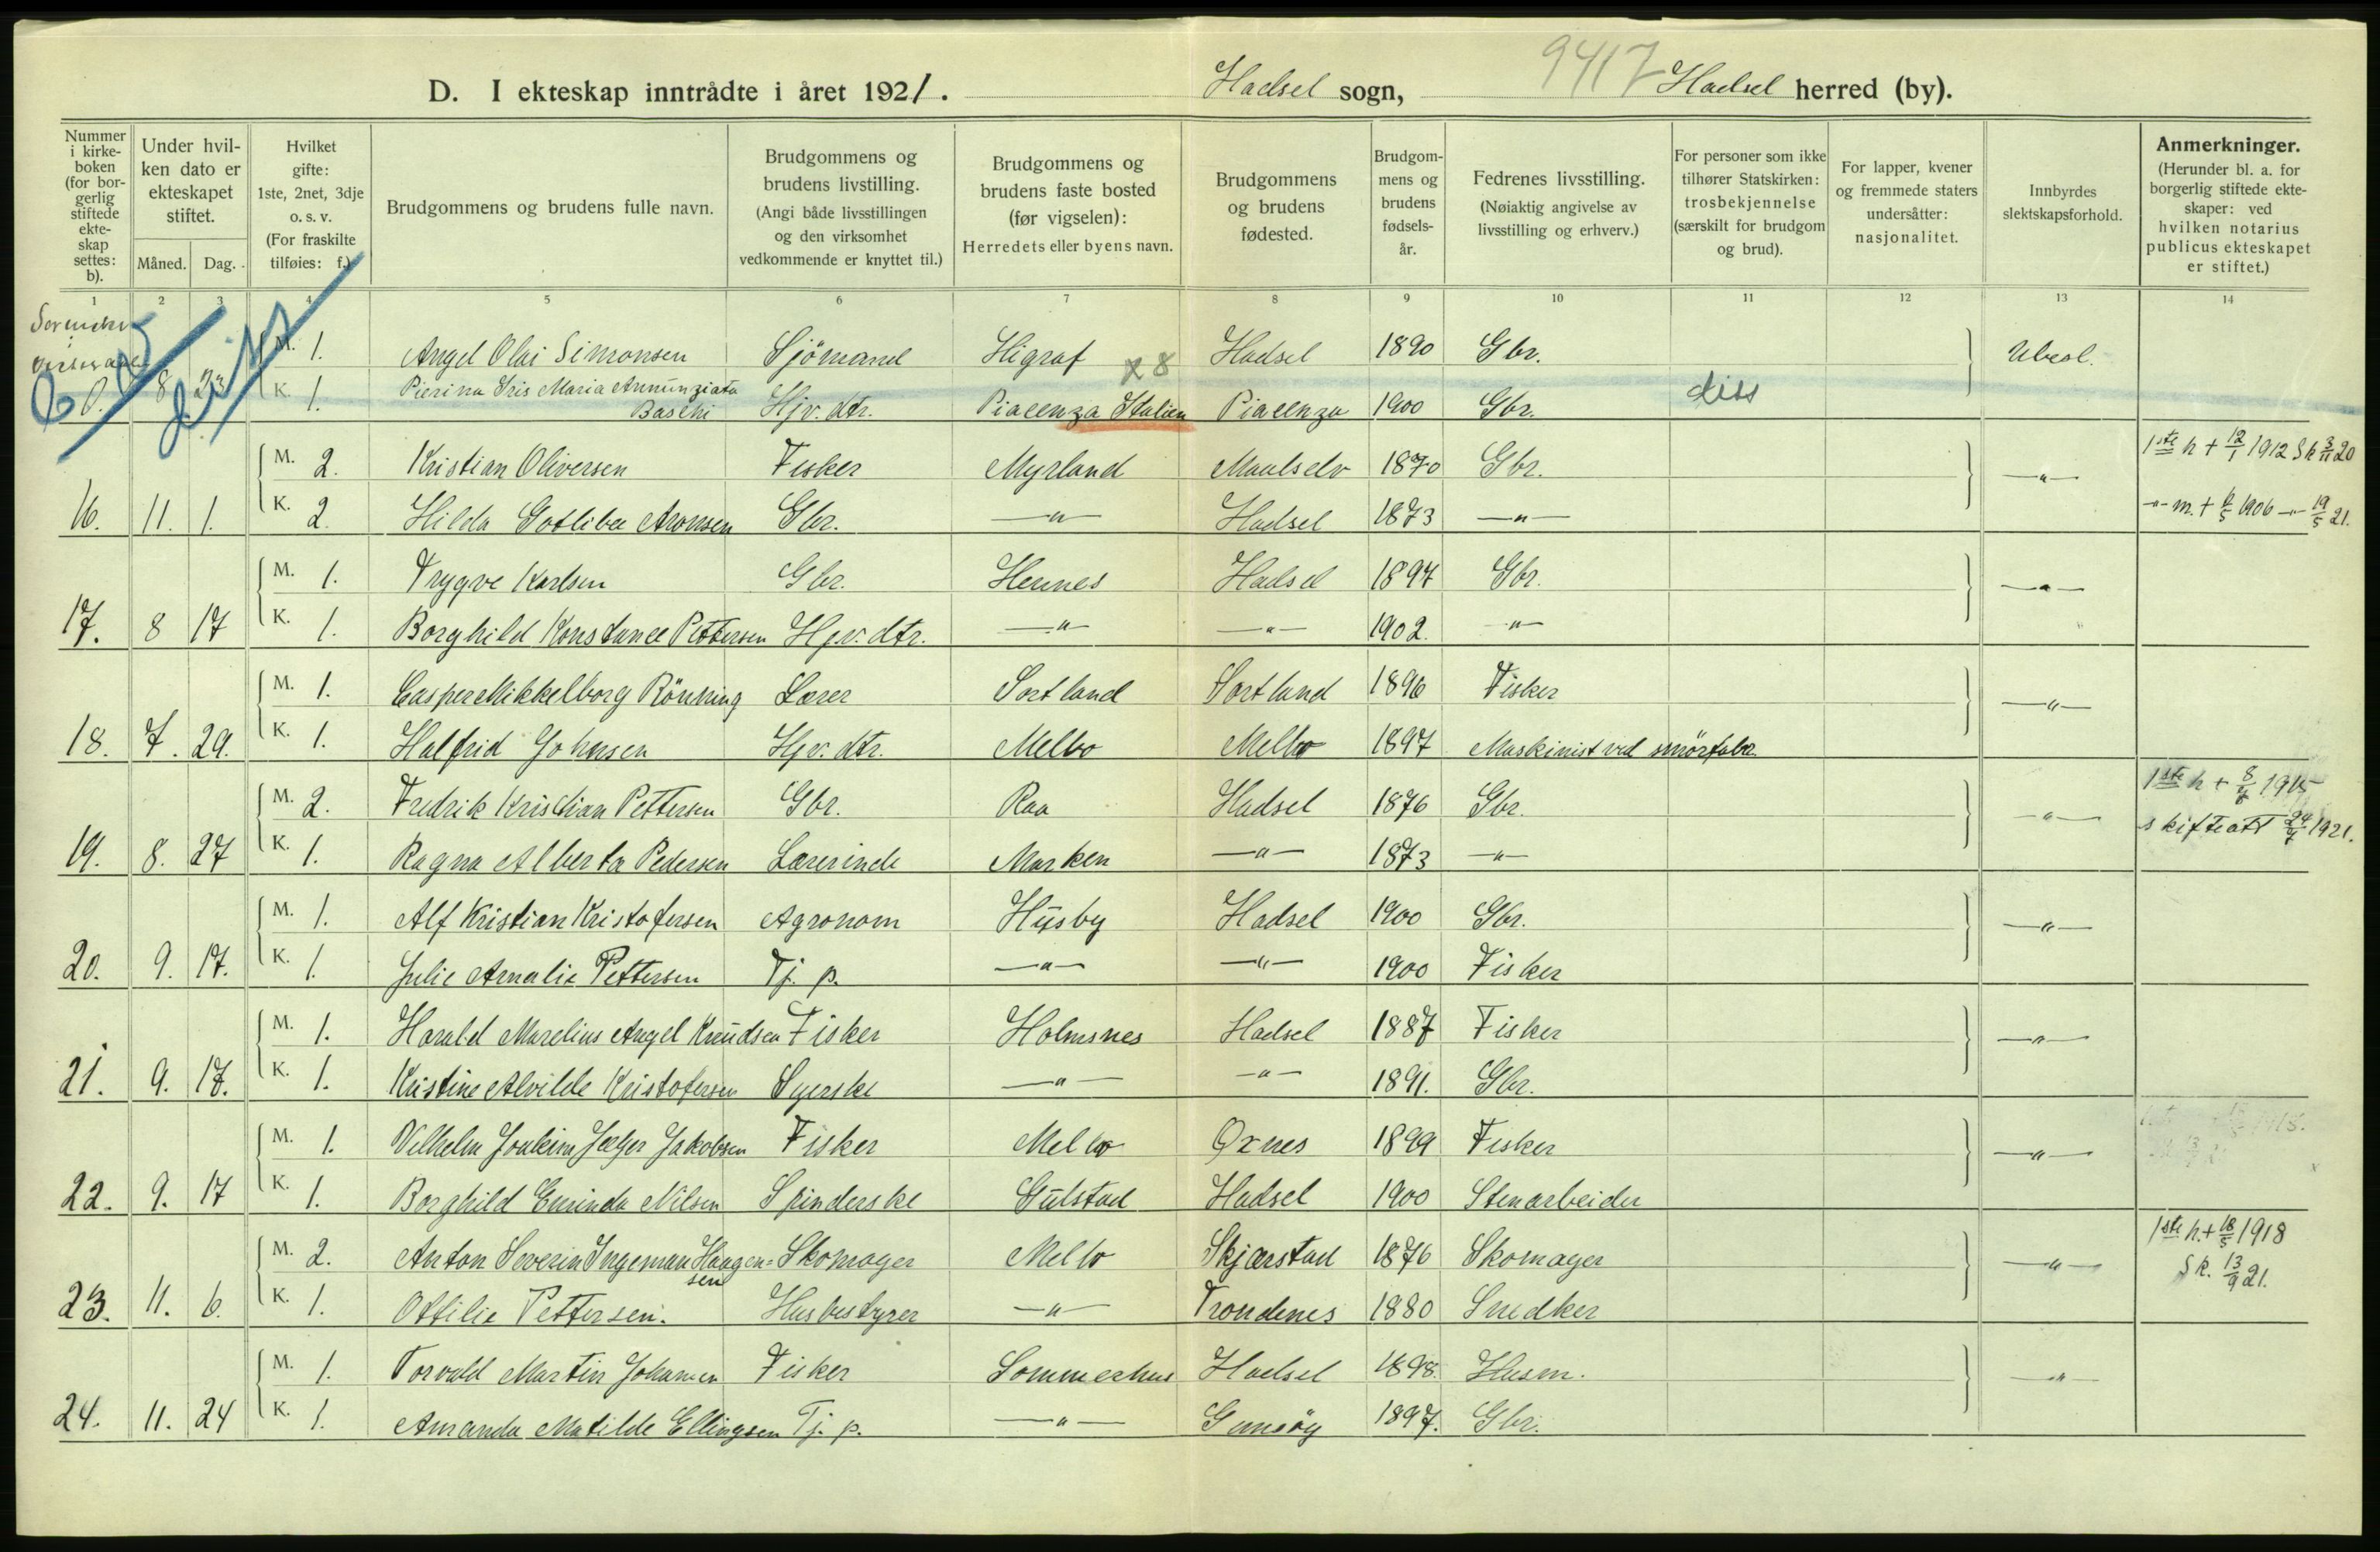 D. I ekteskap inntrådte i året 1921. Hadsel sogn, 9417 Hadsel herred (by).
Nummer i kirkeboken (for borgerlig stiftede ekteskap settes: b).
Under hvilken dato er ekteskapet stiftet.
Måned. Dag.
Hvilket gifte: 1ste, 2net, 3dje o. s. v. (For fraskilte tilføies: f.)
Brudgommens og brudens fulle navn.
Brudgommens og brudens livstilling. (Angi både livsstillingen og den virksomhet vedkommende er knyttet til.)
Brudgommens og brudens faste bosted (før vigselen): Herredets eller byens navn.
Brudgommens og brudens fødested.
Brudgommens og brudens fødselsår.
Fedrenes livsstilling. (Nøiaktig angivelse av livsstilling og erhverv.)
For personer som ikke tilhører Statskirken: trosbekjennelse (særskilt for brudgom og brud).
For lapper, kvener og fremmede staters undersåtter: nasjonalitet.
Innbyrdes slektskapsforhold.
Anmerkninger. (Herunder bl. a. for borgerlig stiftede ekteskaper: ved hvilken notarius publicus ekteskapet er stiftet.)
1 2 3 4 5 6 7 8 9 10 11 12 13 14
M. 1. Angel Olai Simonsen Sjömand Higraf x8 Hadsel 1890 Gbr. Ubesl.
8 23 K. 1. Pierina Iris Maria Annunziata Baschi Hjv. dtr. Piacenza Italien Piacenza 1900 Gbr. diss
M. 2. Kristian Oliversen Fisker Myrland Maalselv 1870 Gbr. —"— 1ste h + 12/1 1912 Sk 3/11 20
16. 11. 1. K. 2 Hilda Gotliba Aronsen Gbr. —"— Hadsel 1873 —"— -"- m. + 6/5 1906 -"- 19/5 21.
M. 1. Trygve Karlsen Gbr. Hennes Hadsel 1897 Gbr. —"—
17. 8 17 K. 1. Borghild Konstance Pettersen Hjv. dtr. —"— —"— 1902. —"—
M. 1. Casper Mikkelborg Rönning Lærer Sortland Sortland 1896 Fisker —"—
18. 7. 29. K. 1. Halfrid Johnsen Hjv. dtr. Melbo Melbo 1897 Maskinist ved smörfabr.
M. 2. Fredrik Kristian Pettersen Gbr. Raa Hadsel 1876 Gbr. —"— 1ste h + 8/8 1915
19. 8. 27 K. 1. Ragna Alberta Pedersen Lærerinde Marken —"— 1873 —"— skifteatt 24/7 1921.
M. 1. Alf Kristian Kristofersen Agronom Husby Hadsel 1900 Gbr. —"—
20. 9. 17. K. 1. Julie Amalie Pettersen Tj. p. —"— —"— 1900 Fisker
M. 1. Harald Marelius Angel Knudsen Fisker Holmsnes Hadsel 1887 Fisker —"—
21. 9. 17. K. 1. Kristine Alvilde Kristofersen Syerske —"— —"— 1891. Gbr.
M. 1. Vilhelm Joakim Jæger Jakobsen Fisker Melbo Öxnes 1899 Fisker —"—
22. 9. 17 K. 1. Borghild Enrinda Nilsen Spinderske Gulstad Hadsel 1900 Stenarbeider
M. 2. Anton Severin Ingeman Haagen=sen Skomager Melbo Skjærstad 1876 Skomager —"— 1ste h. + 18/5 1918
23. 11. 6. K. 1. Ottilie Pettersen. Husbestyrer —"— Trondenes 1880 Snedker Sk. 13/9 21.
M. 1. Torvald Martin Johansen Fisker Sommerhus Hadsel 1898. Husm. —"—
24. 11. 24 K. 1. Amanda Matilde Ellingsen Tj. p. —"— Gimsöy 1897. Gbr.